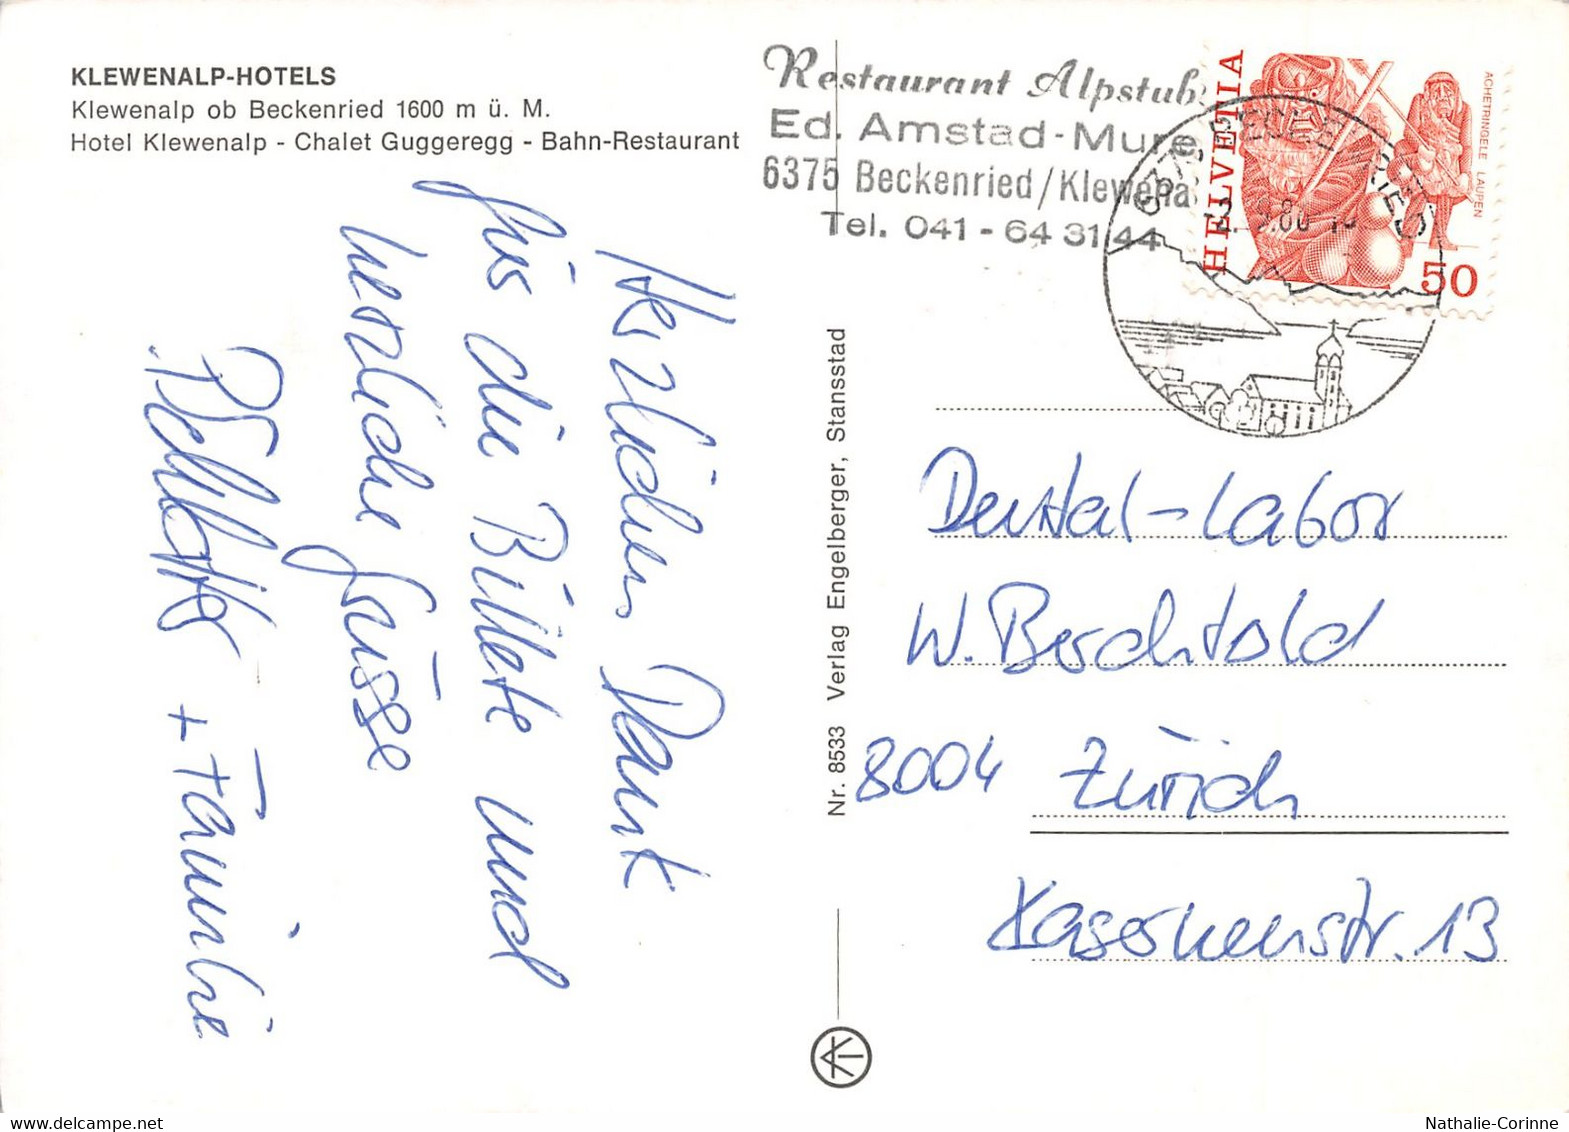 KLEWENALP-HOTELS
Klewenalp ob Beckenried 1600 m ü. M.
Hotel Klewenalp - Chalet Guggeregg - Bahn-Restaurant
Restaurant Alpstub
Ed. Amstad-Mure
6375 Beckenried/Klewena
Tel. 041 - 64 31 44
6375 BECKENRIED
HELVETIA
ACHETRINGELE LAUPEN
50
Herzlichen Dank
für die Billete und
herzliche Grüsse
+ Familie
Nr. 8533 Verlag Engelberger, Stansstad
Dental-Labor
W. Berchtold
8004 Zürich
Kasernenstr. 13
delcampe.net
Nathalie-Corinne